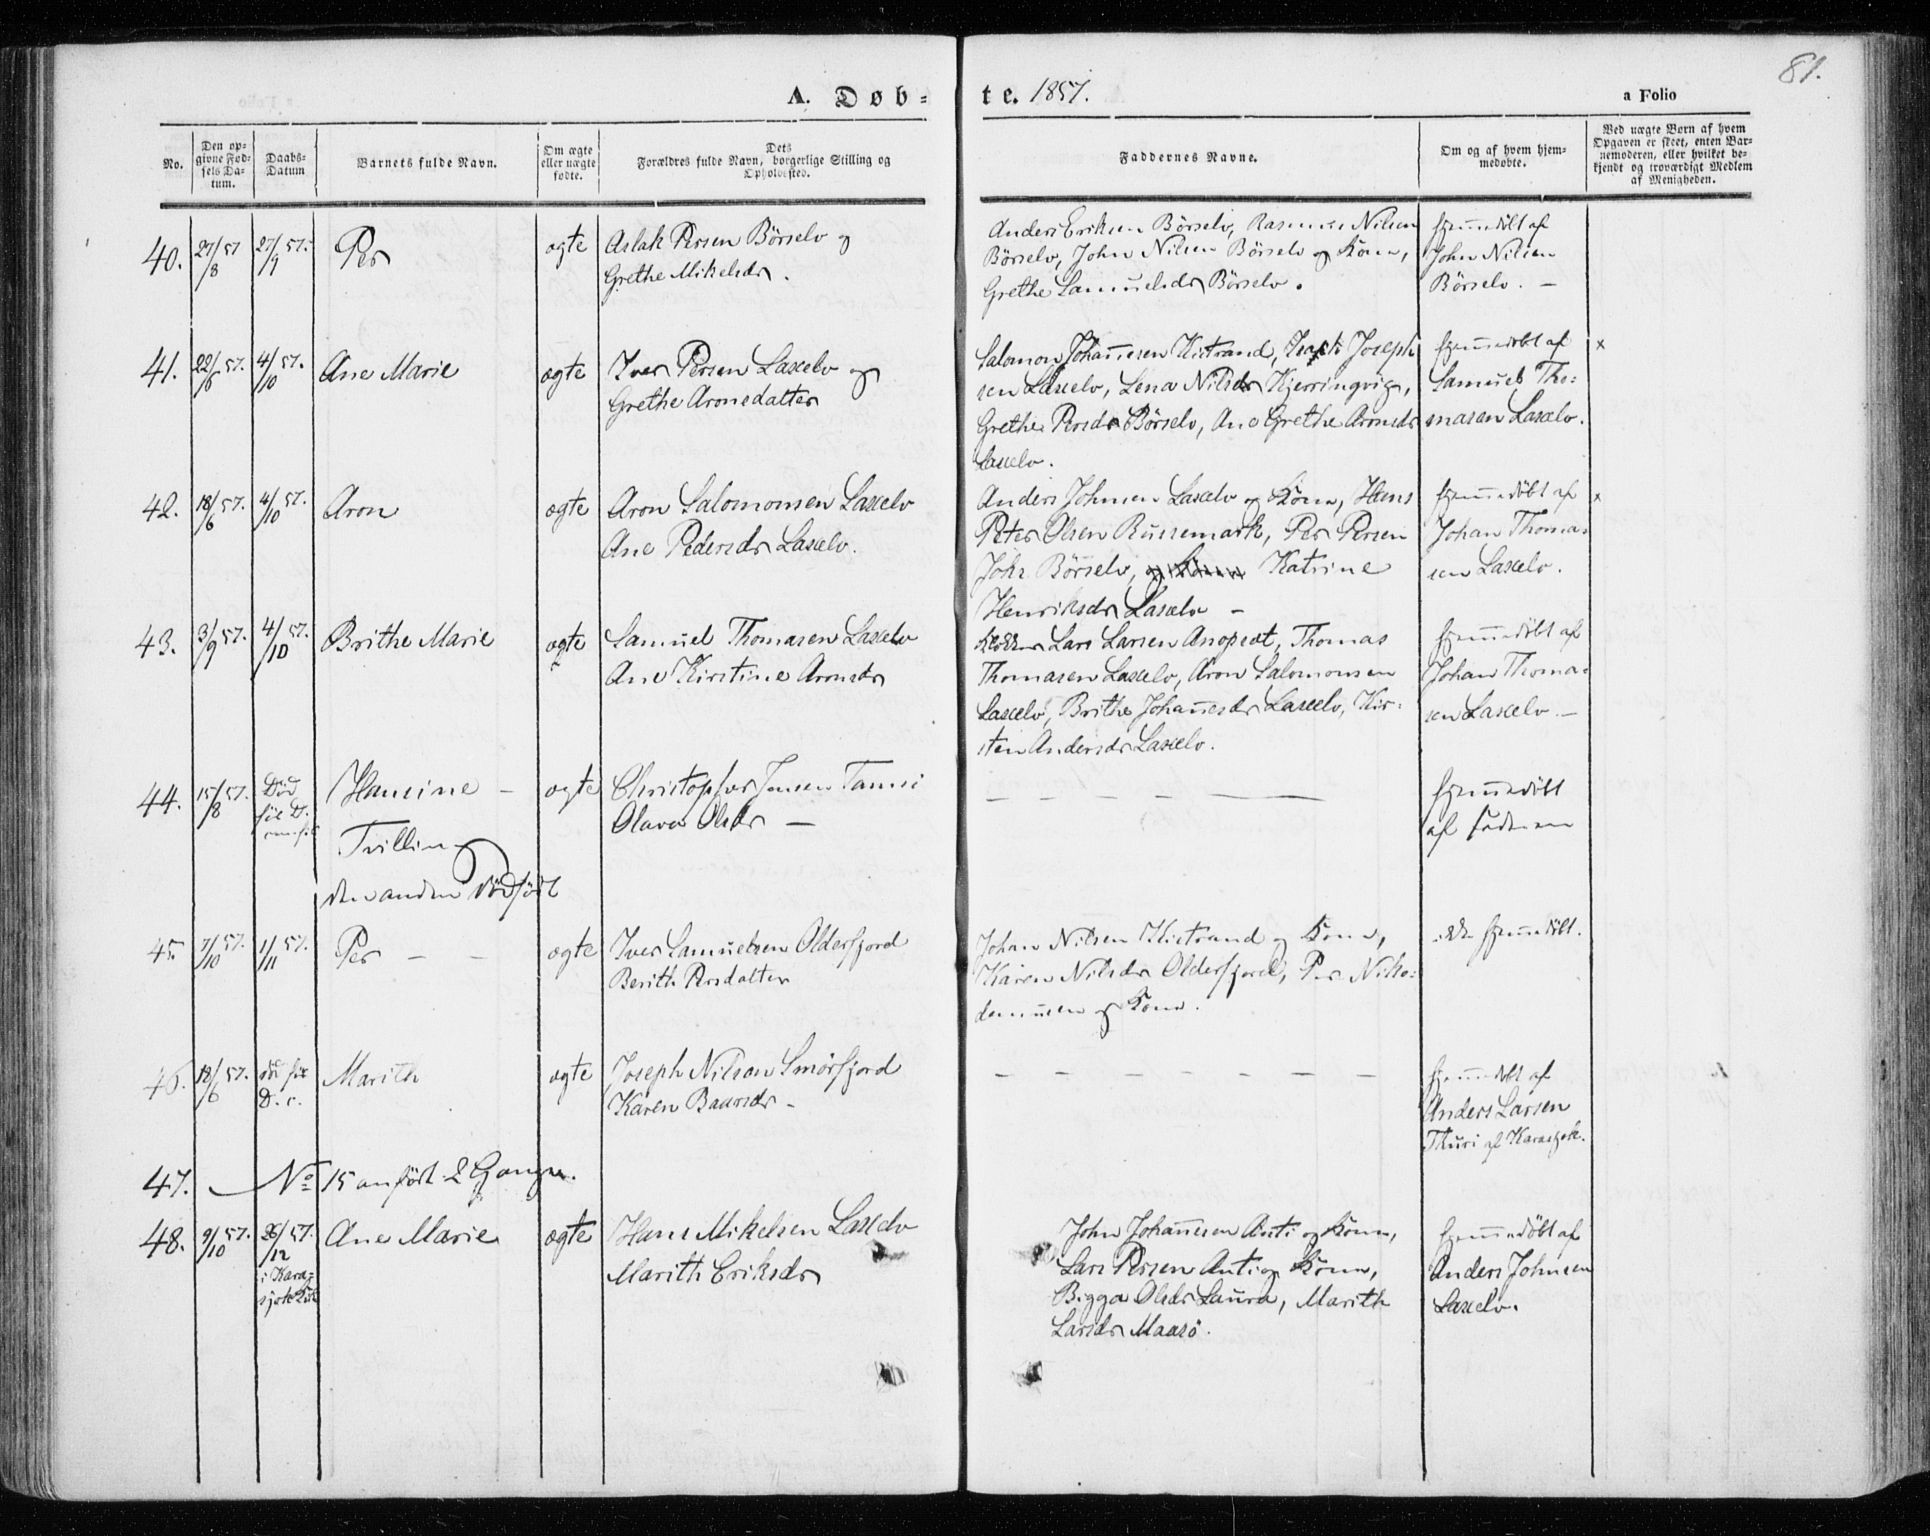 81.
A. Døb-
te. 1857.
a Folio
No.
Den op-
givne Fød-
sels Da-
tum.
Daabs-
Datum
Barnets fulde Navn.
Om ægte
eller uægte
fødte.
Dets
Forældres fulde Navn, borgerlige Stilling og
Opholdssted.
Faddernes Navne.
Om og af hvem hjem-
medøbte.
Ved uægte Børn af hvem
Opgaven er skeet, enten Bar-
nemoderen, eller hvilket be-
kjendt og troværdigt Medlem
af Menigheden.
40. 27/8 57 27/9 57. Per ægte Aslak Persen Börselv og
Grethe Mikelsdr.
Anders Eriksen Börselv, Rasmus Nilsen
Börselv, John Nilsen Börselv og Kone,
Grethe Samuelsdr Börselv.
hjemmedöbt af
John Nilsen
Börselv. —
41. 22/6 57. 4/10 57. Ane Marie ægte Iver Persen Laxelv og
Grethe Aronsdatter
Salomon Johannesen Kistrand, Isach Joseph
sen Laxelv, Lena Nilsdr Kjerringvig,
Grethe Persdr Börselv, Ane Grethe Aronsdr
Laxelv.
hjemmedöbt af
Samuel Tho:
masen Laxelv.
x
42. 18/6 57. 4/10 57. Aron ægte Aron Salomonsen Laxelv
Ane Pedersdr Laxelv.
Anders Johnsen Laxelv og Kone, Hans
Peter Olsen Russemark, Per Persen
Johr Börselv, Katrine
Henriksdr Laxelv —
hjemmedöbt af
Johan Thoma-
sen Laxelv.
x
43. 3/9 57. 4/10 57. Brithe Marie ægte Samuel Thomasen Laxelv
Ane Kirstine Aronsdr
Lars Larsen Anopset, Thomas
Thomasen Laxelv, Aron Salomonsen
Laxelv, Brithe Johannesdr Laxelv, Kir-
sten Andersdr Laxelv.
hjemmedöbt af
Johan Thoma-
sen Laxelv. —
44. 15/8 57. Död
för D.
Hansine — ægte Christopher Jensen
Olava Olsdr —
Tvilling
den anden dödfödt
hjemmedöbt
af Faderen
45. 7/10 57. 1/11 57. Per — — ægte Iver Samuelsen Oldersfjord
Berith Persdatter
Johan Nilsen Kistrand og Kone,
Karen Nilsdr Oldersfjord, Per Niko:
demusen og Kone.
ikke hjemmedöbt.
46. 18/6 57. död för
D.
Marith ægte Joseph Nilsen Smörfjord
Karen Baarsdr —
hjemmedöbt af
Anders Larsen
Thuri af Karasjok.
47. No 15 anfört 2 Gange.
48. 9/10 57. 26/12 57.
i Kara-
sjok
Ane Marie ægte Hans Mikelsen Laxelv
Marith Eriksdr
John Johannesen Anti og Kone,
Lars Persen Anti og Kone,
Bigga Olsdr Laura, Marith
Larsdr Maasö.
hjemmedöbt af
Anders Johnsen
Laxelv.